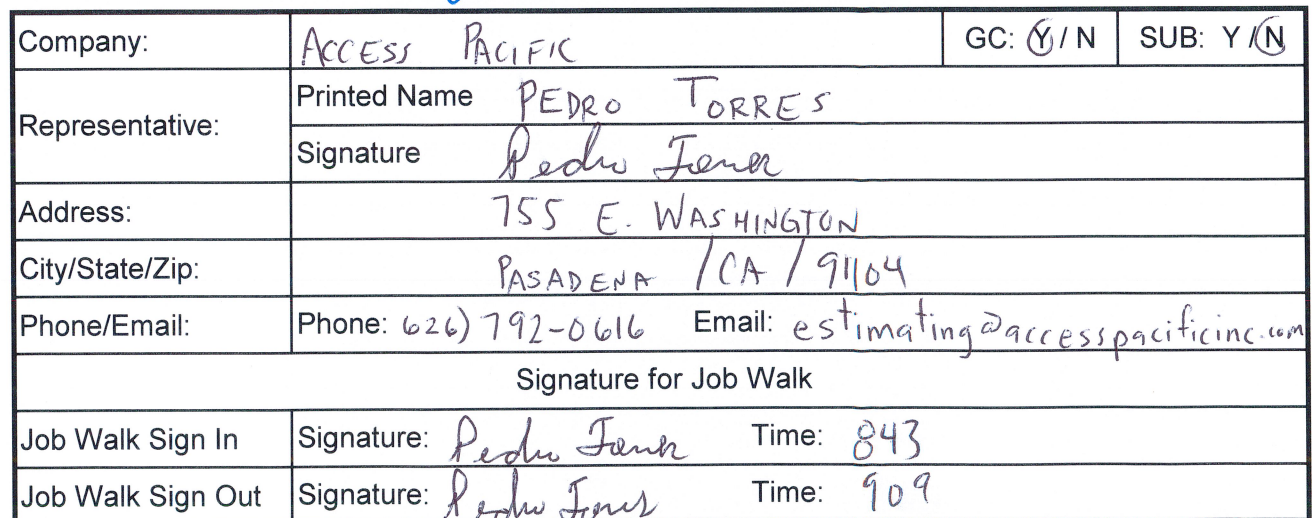 Company: ACCESS PACIFIC GC: Y / N SUB: Y / N
Representative: Printed Name PEDRO TORRES
Signature Pedro Torres
Address: 755 E. WASHINGTON
City/State/Zip: PASADENA / CA / 91104
Phone/Email: Phone: 626) 792-0616 Email: estimating@accesspacificinc.com
Signature for Job Walk
Job Walk Sign In Signature: Pedro Torres Time: 843
Job Walk Sign Out Signature: Pedro Torres Time: 909